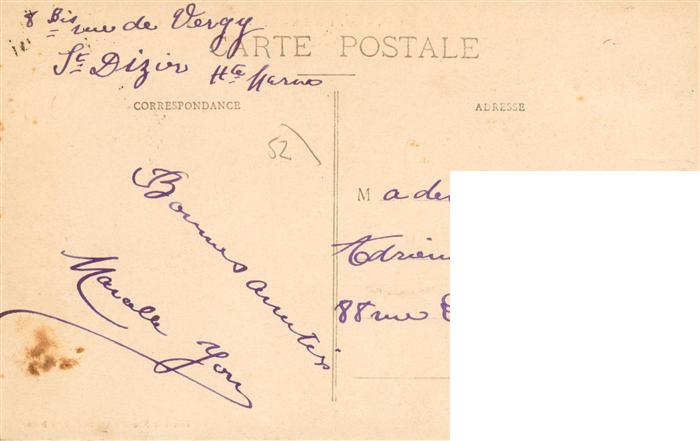 8 Bis rue de Vergy
CARTE POSTALE
St Dizier Hte Marne
CORRESPONDANCE
ADRESSE
52
Bonnes amitiés
M a de
Adrien
88 rue